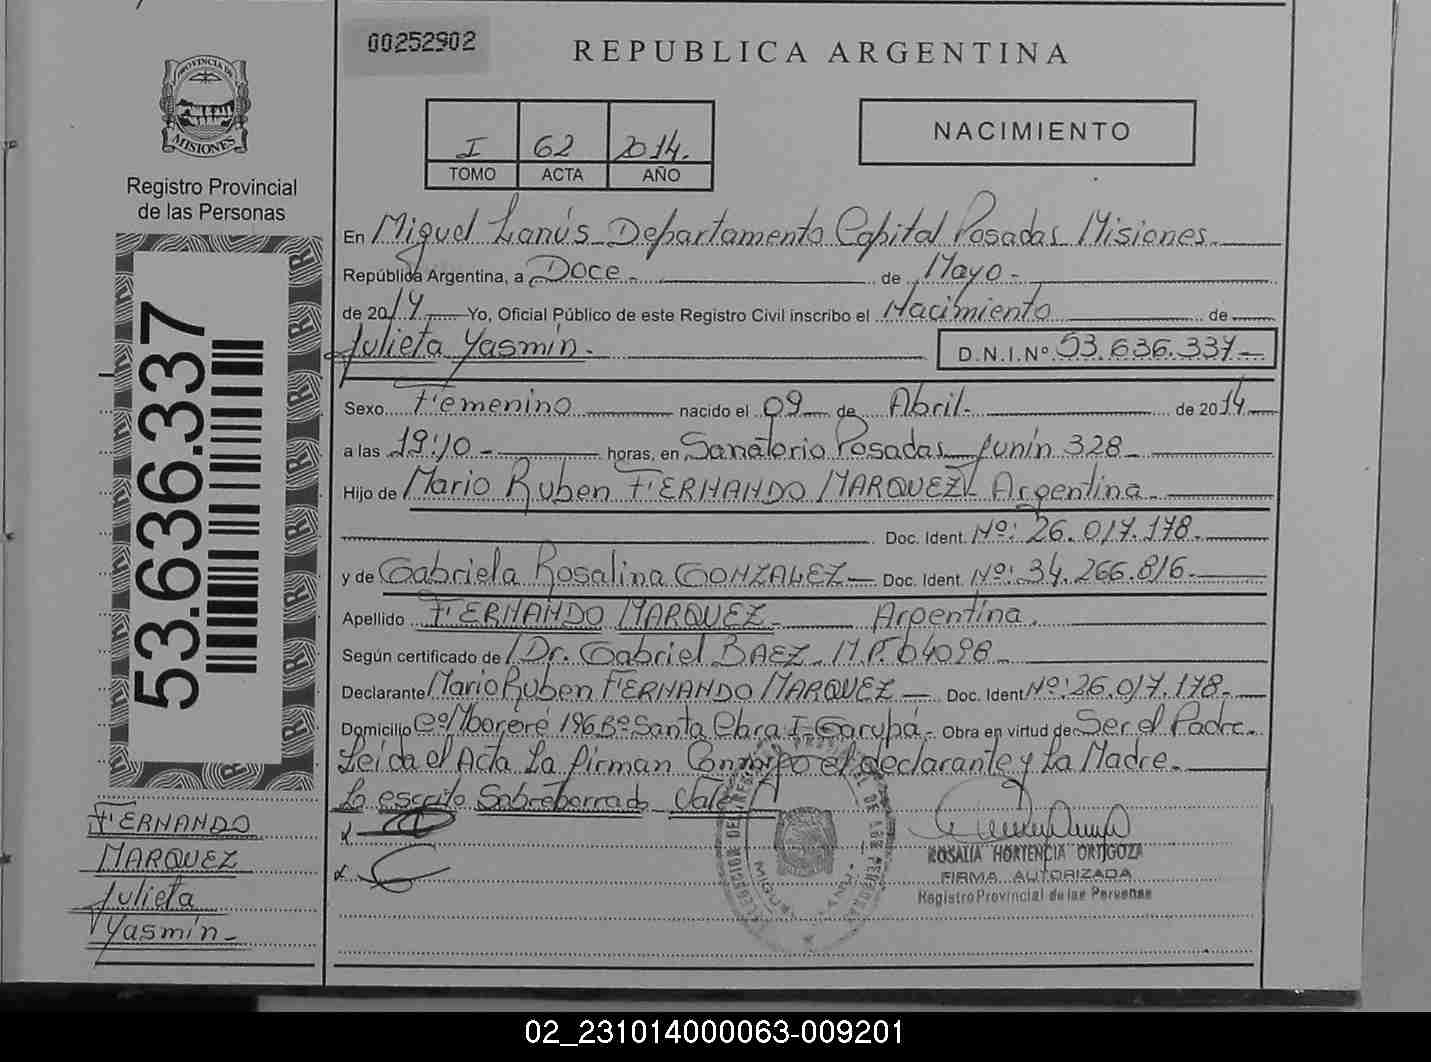 00252902
REPUBLICA ARGENTINA
PROVINCIA DE
MISIONES
Registro Provincial
de las Personas
I 62 2014.
TOMO ACTA AÑO
NACIMIENTO
En Miguel Lanús Departamento Capital Posadas Misiones.
República Argentina, a Doce de Mayo
de 2014 Yo, Oficial Público de este Registro Civil inscribo el Nacimiento de
Julieta Yasmín. D.N.I.Nº 53.636.337
Sexo Femenino nacido el 09 de Abril de 2014
a las 19:10 horas, en Sanatorio Posadas Junín 328
Hijo de Mario Ruben FERNANDO MARQUEZ Argentina
Doc. Ident. Nº: 26.017.178.
y de Gabriela Rosalina GONZALEZ Doc. Ident. Nº: 34.266.816
Apellido FERNANDO MARQUEZ Argentina.
Según certificado de Dr. Gabriel BAEZ M.P. 04098
Declarante Mario Ruben FERNANDO MARQUEZ Doc. Ident Nº: 26.017.178
Domicilio Cº/Mororé 196 Bº Santa Clara I-Garupá Obra en virtud de Ser el Padre.
Leída el Acta La firman Conmigo el declarante y La Madre.
Lo escrito Sobreborrado Vale
ROSALIA HORTENCIA ORTIGOZA
FIRMA AUTORIZADA
Registro Provincial de las Personas
53.636.337
FERNANDO
MARQUEZ
Julieta
Yasmín
02_231014000063-009201